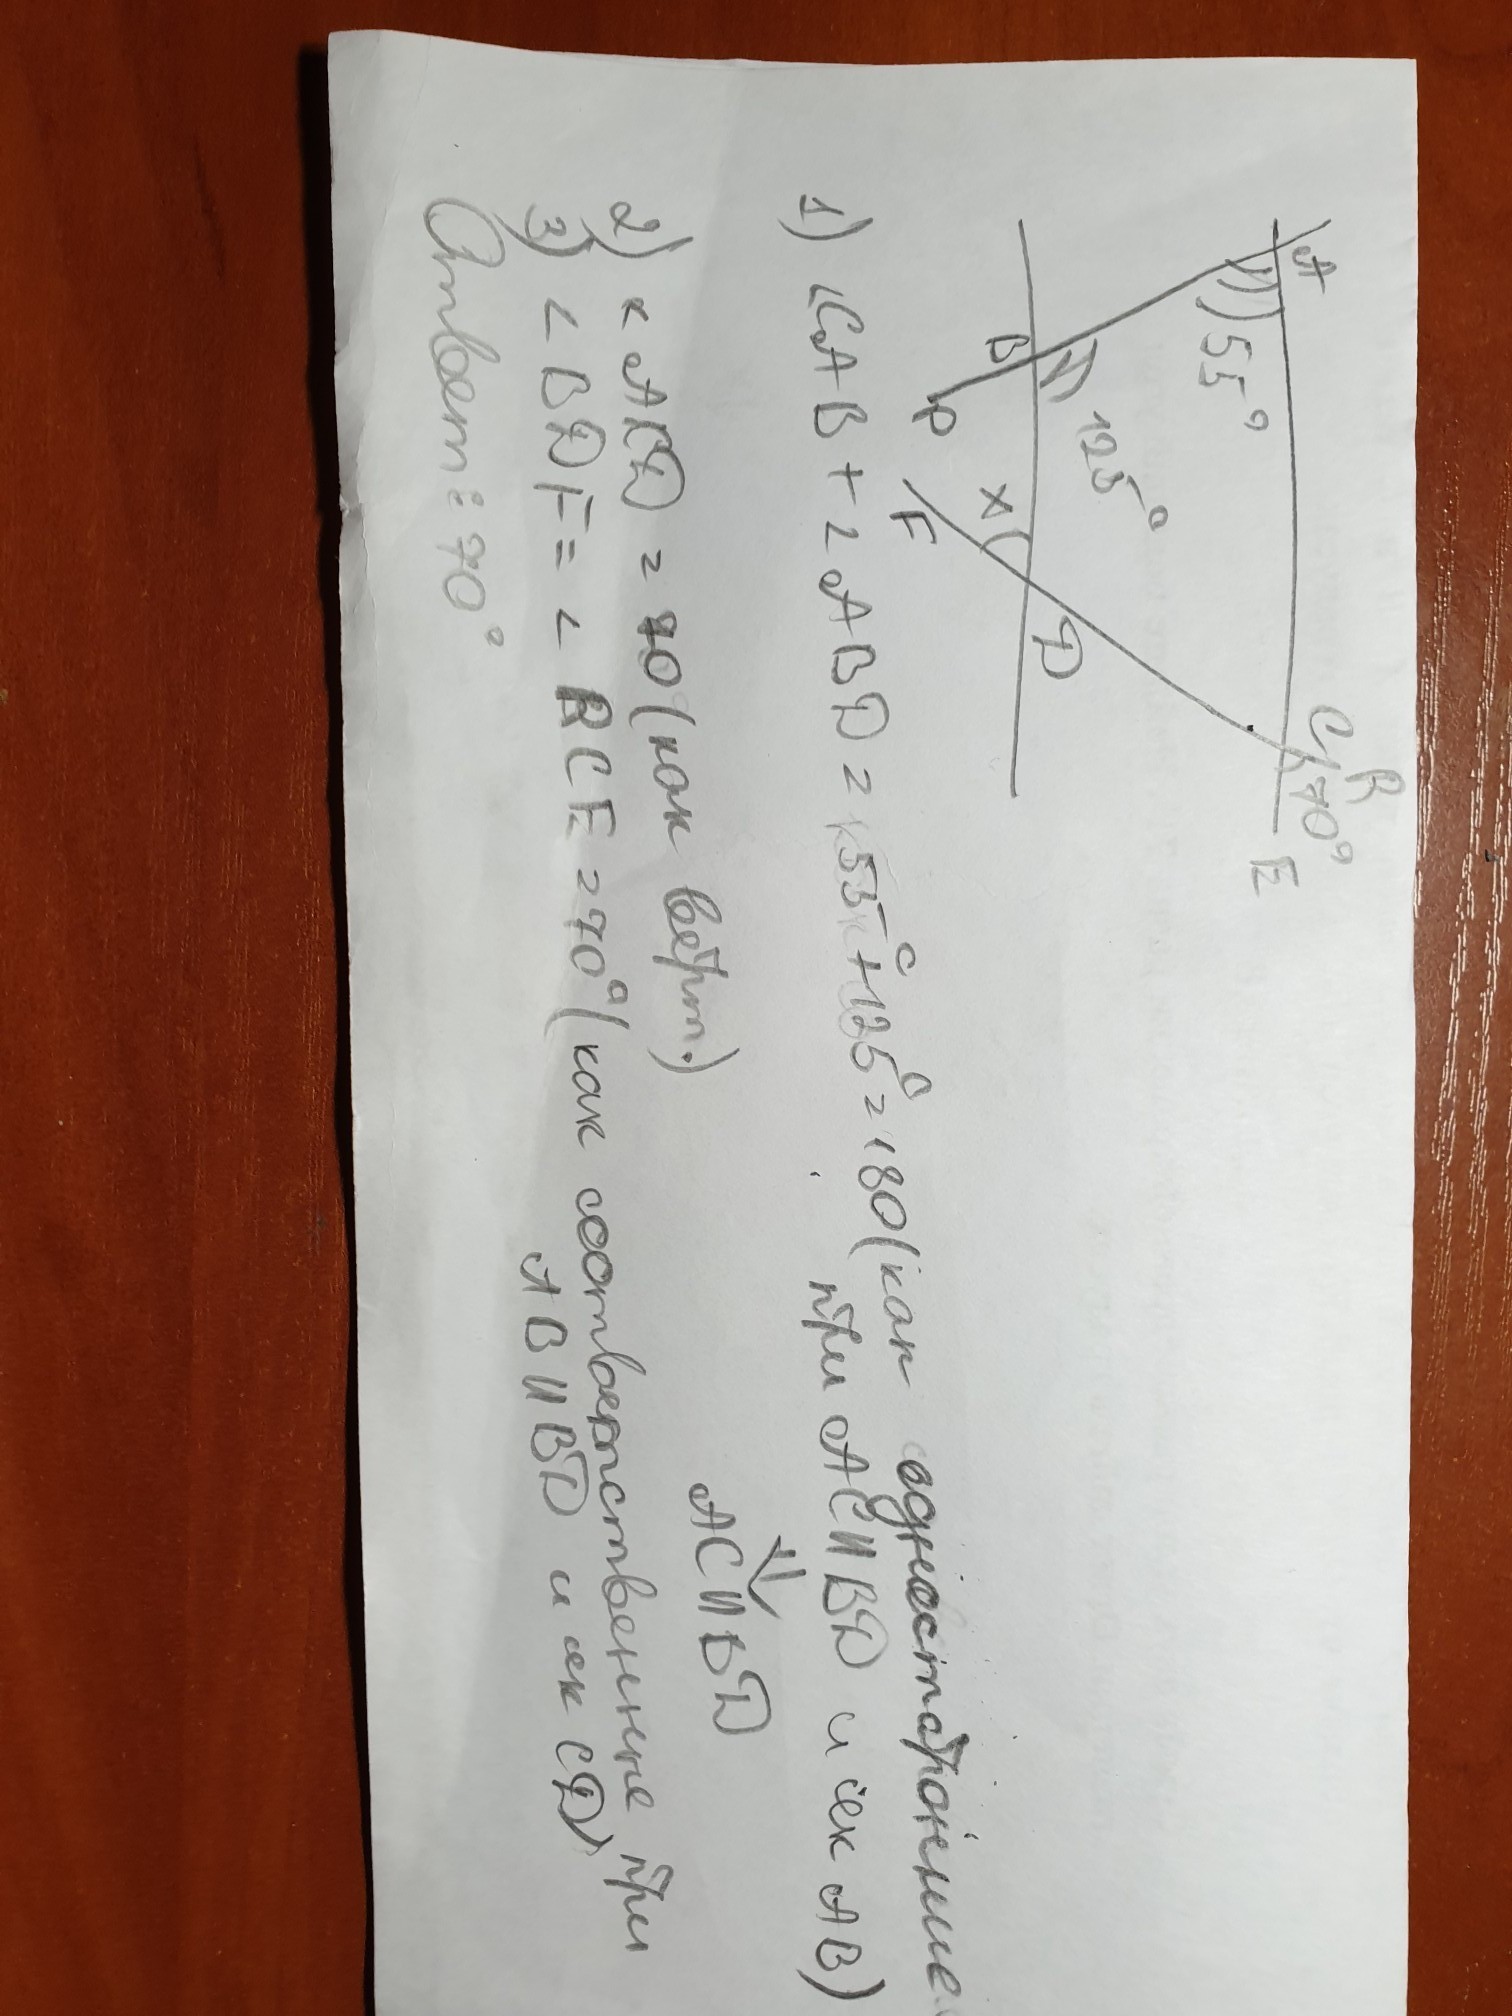 A
C
R
70°
E
55°
125°
B
D
x
P
F
1) ∠CAB + ∠ABD = 55° + 125° = 180 (как одностаронние
при AC ∥ BD и сек AB)
⇓
AC ∥ BD
2) < ACD = 70 (как верт.)
3) < BDF = < RCE = 70° (как соответственные при
AB ∥ BD и сек CD)
Ответ: 70°